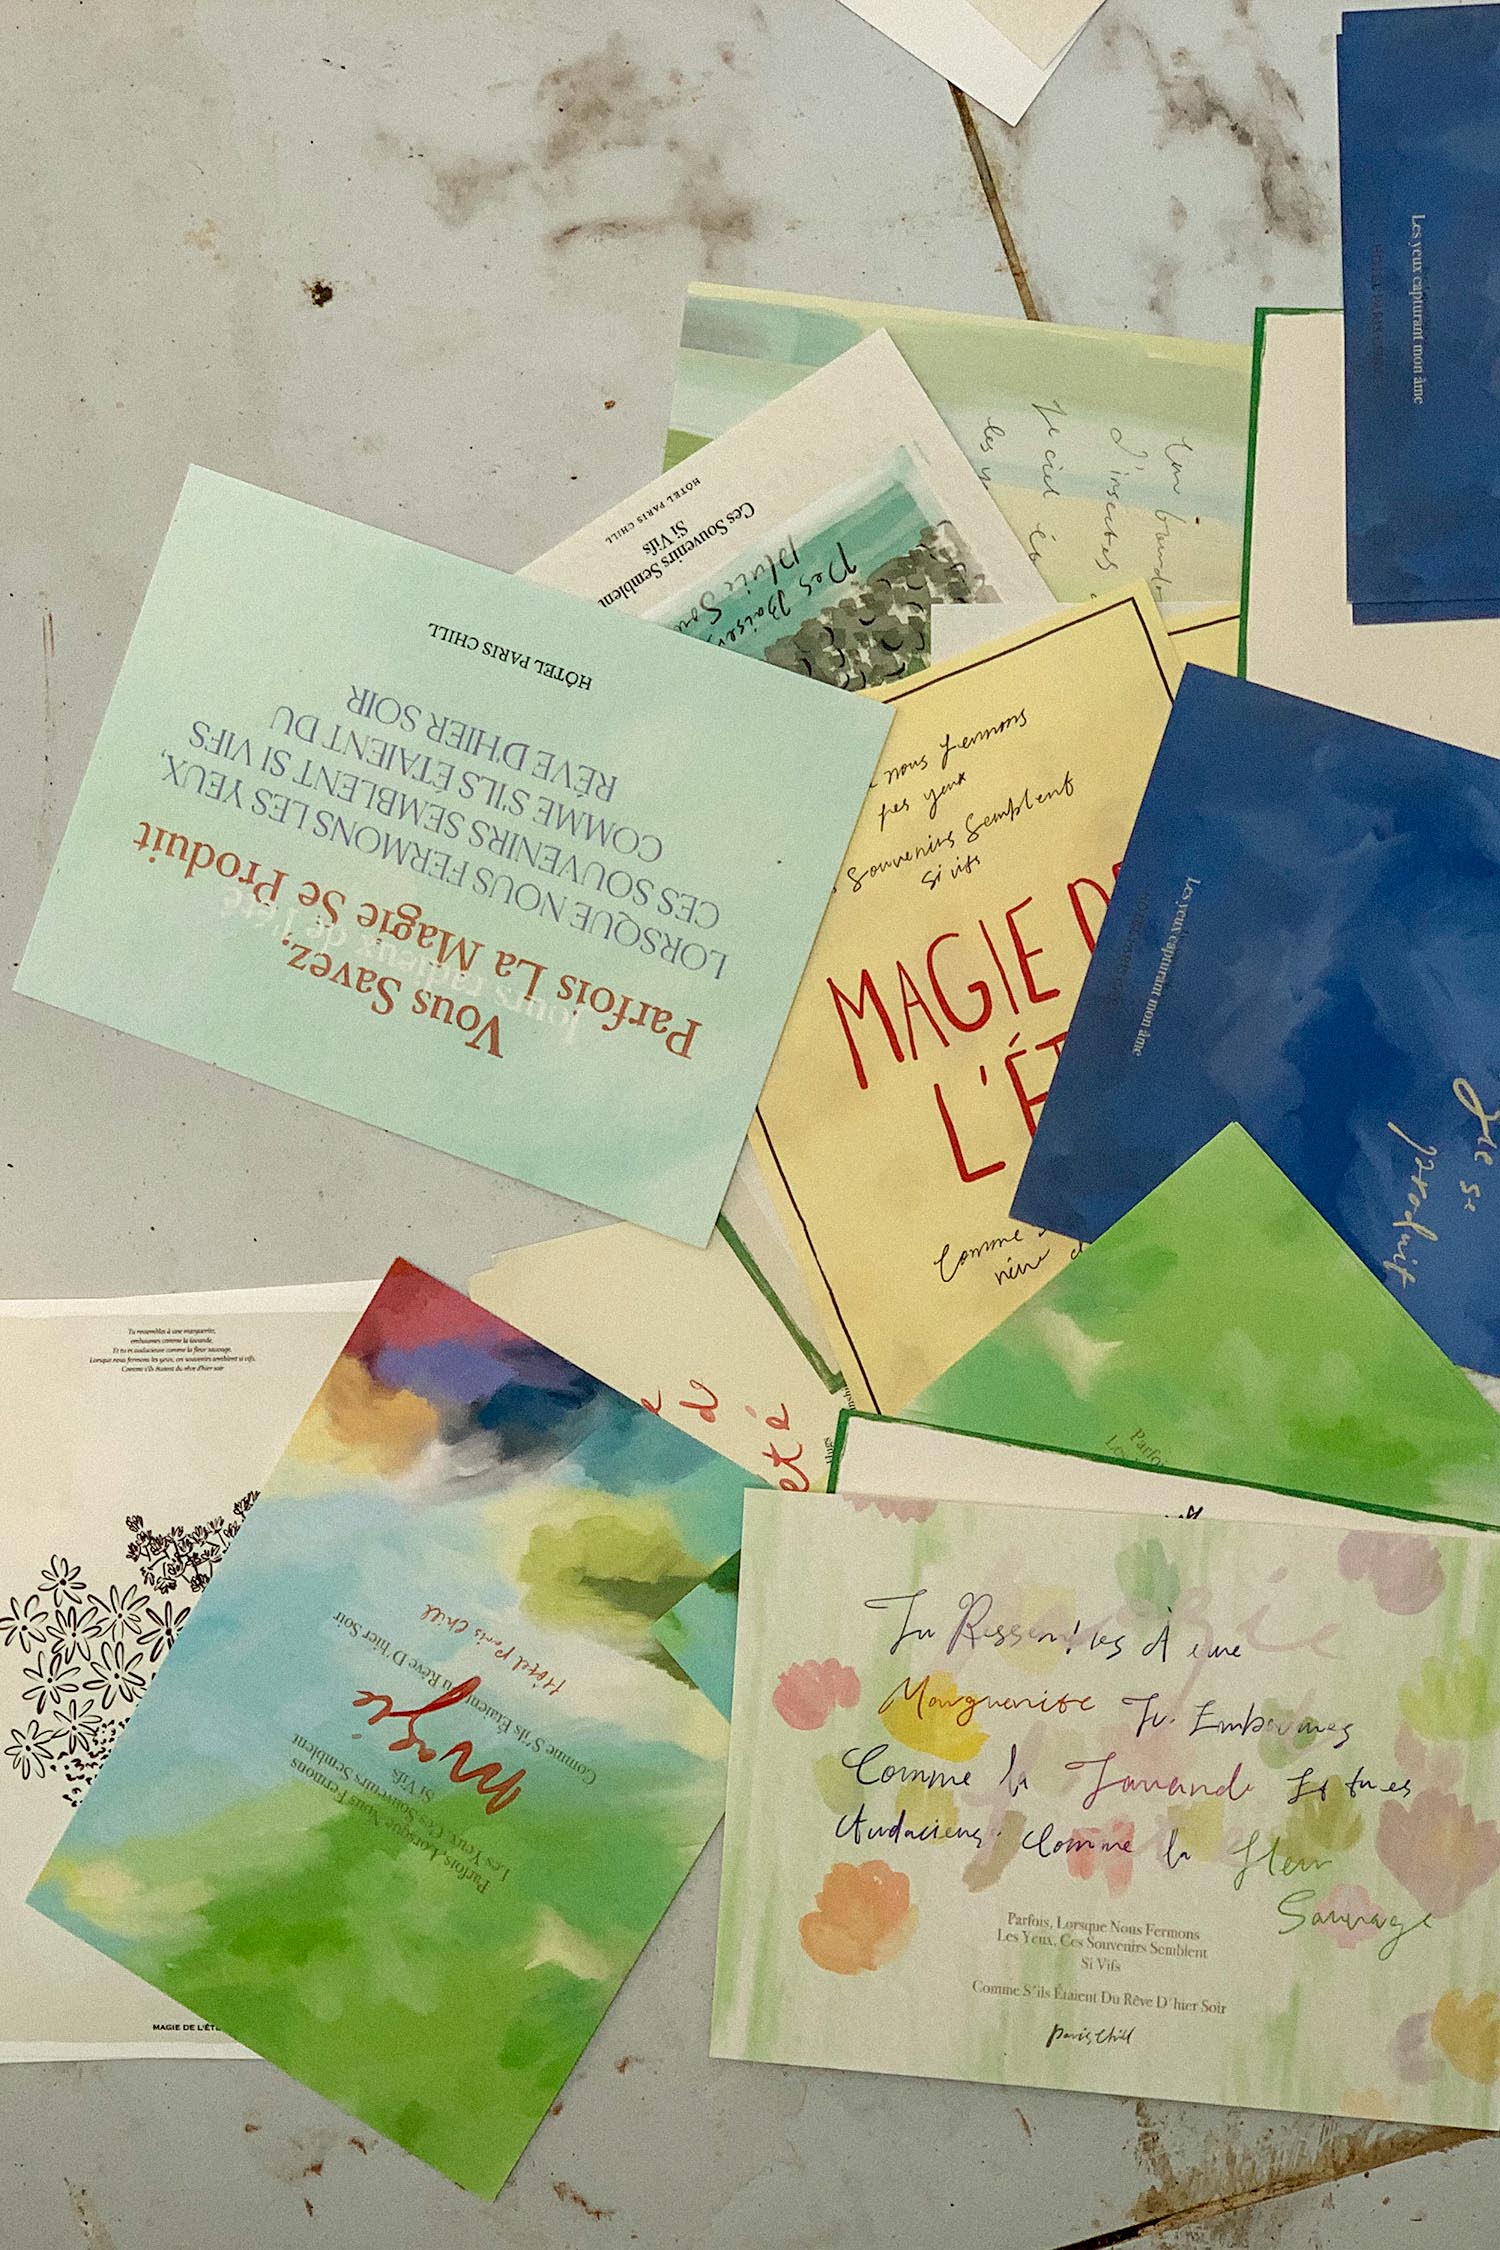 Les yeux capturant mon âme
HÔTEL PARIS CHILL
les y
Le ciel
d'insectes
HÔTEL PARIS CHILL
Ces Souvenirs Semblent
Si Vifs
Des Baisers
pluie Sou
Vous Savez,
Parfois La Magie Se Produit
jours radieux de l'été
LORSQUE NOUS FERMONS LES YEUX,
CES SOUVENIRS SEMBLENT SI VIFS
COMME S'ILS ÉTAIENT DU
RÊVE D'HIER SOIR
HÔTEL PARIS CHILL
nous fermons
les yeux
Souvenirs Semblent
si vifs
MAGIE D
L'ÉT
Comme
Les yeux capturant mon âme
gie se
produit
Parfo
Le
de
été
Tu ressembles à une marguerite,
embaumes comme la lavande,
Et tu es audacieuse comme la fleur sauvage.
Lorsque nous fermons les yeux, ces souvenirs semblent si vifs.
Comme s'ils étaient du rêve d'hier soir
MAGIE DE L'ÉTÉ
Parfois, Lorsque Nous Fermons
Les Yeux, Ces Souvenirs Semblent
Si Vifs
Magie
Comme S'ils Étaient Du Rêve D'hier Soir
Hôtel Paris Chill
Tu Ressembles À une
Marguerite Tu Embaumes
Comme la Lavande Et tu es
Audacieuse Comme la fleur
Sauvage
Parfois, Lorsque Nous Fermons
Les Yeux, Ces Souvenirs Semblent
Si Vifs
Comme S'ils Étaient Du Rêve D'hier Soir
Paris Chill